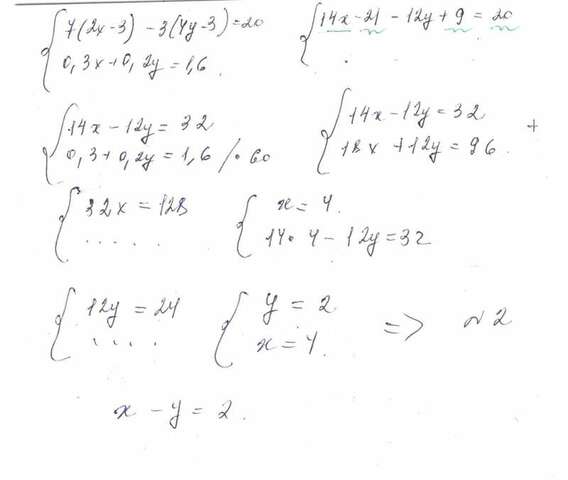 7(2x-3) - 3(4y-3) = 20
0,3x+0,2y = 1,6
14x - 21 - 12y + 9 = 20
.
14x - 12y = 32
0,3+0,2y = 1,6 / • 60
14x - 12y = 32
18x + 12y = 96. +
32x = 128
.....
x = 4.
14• 4 - 12y = 32
12y = 24
....
y = 2
x = 4.
=> ~ 2
x - y = 2.